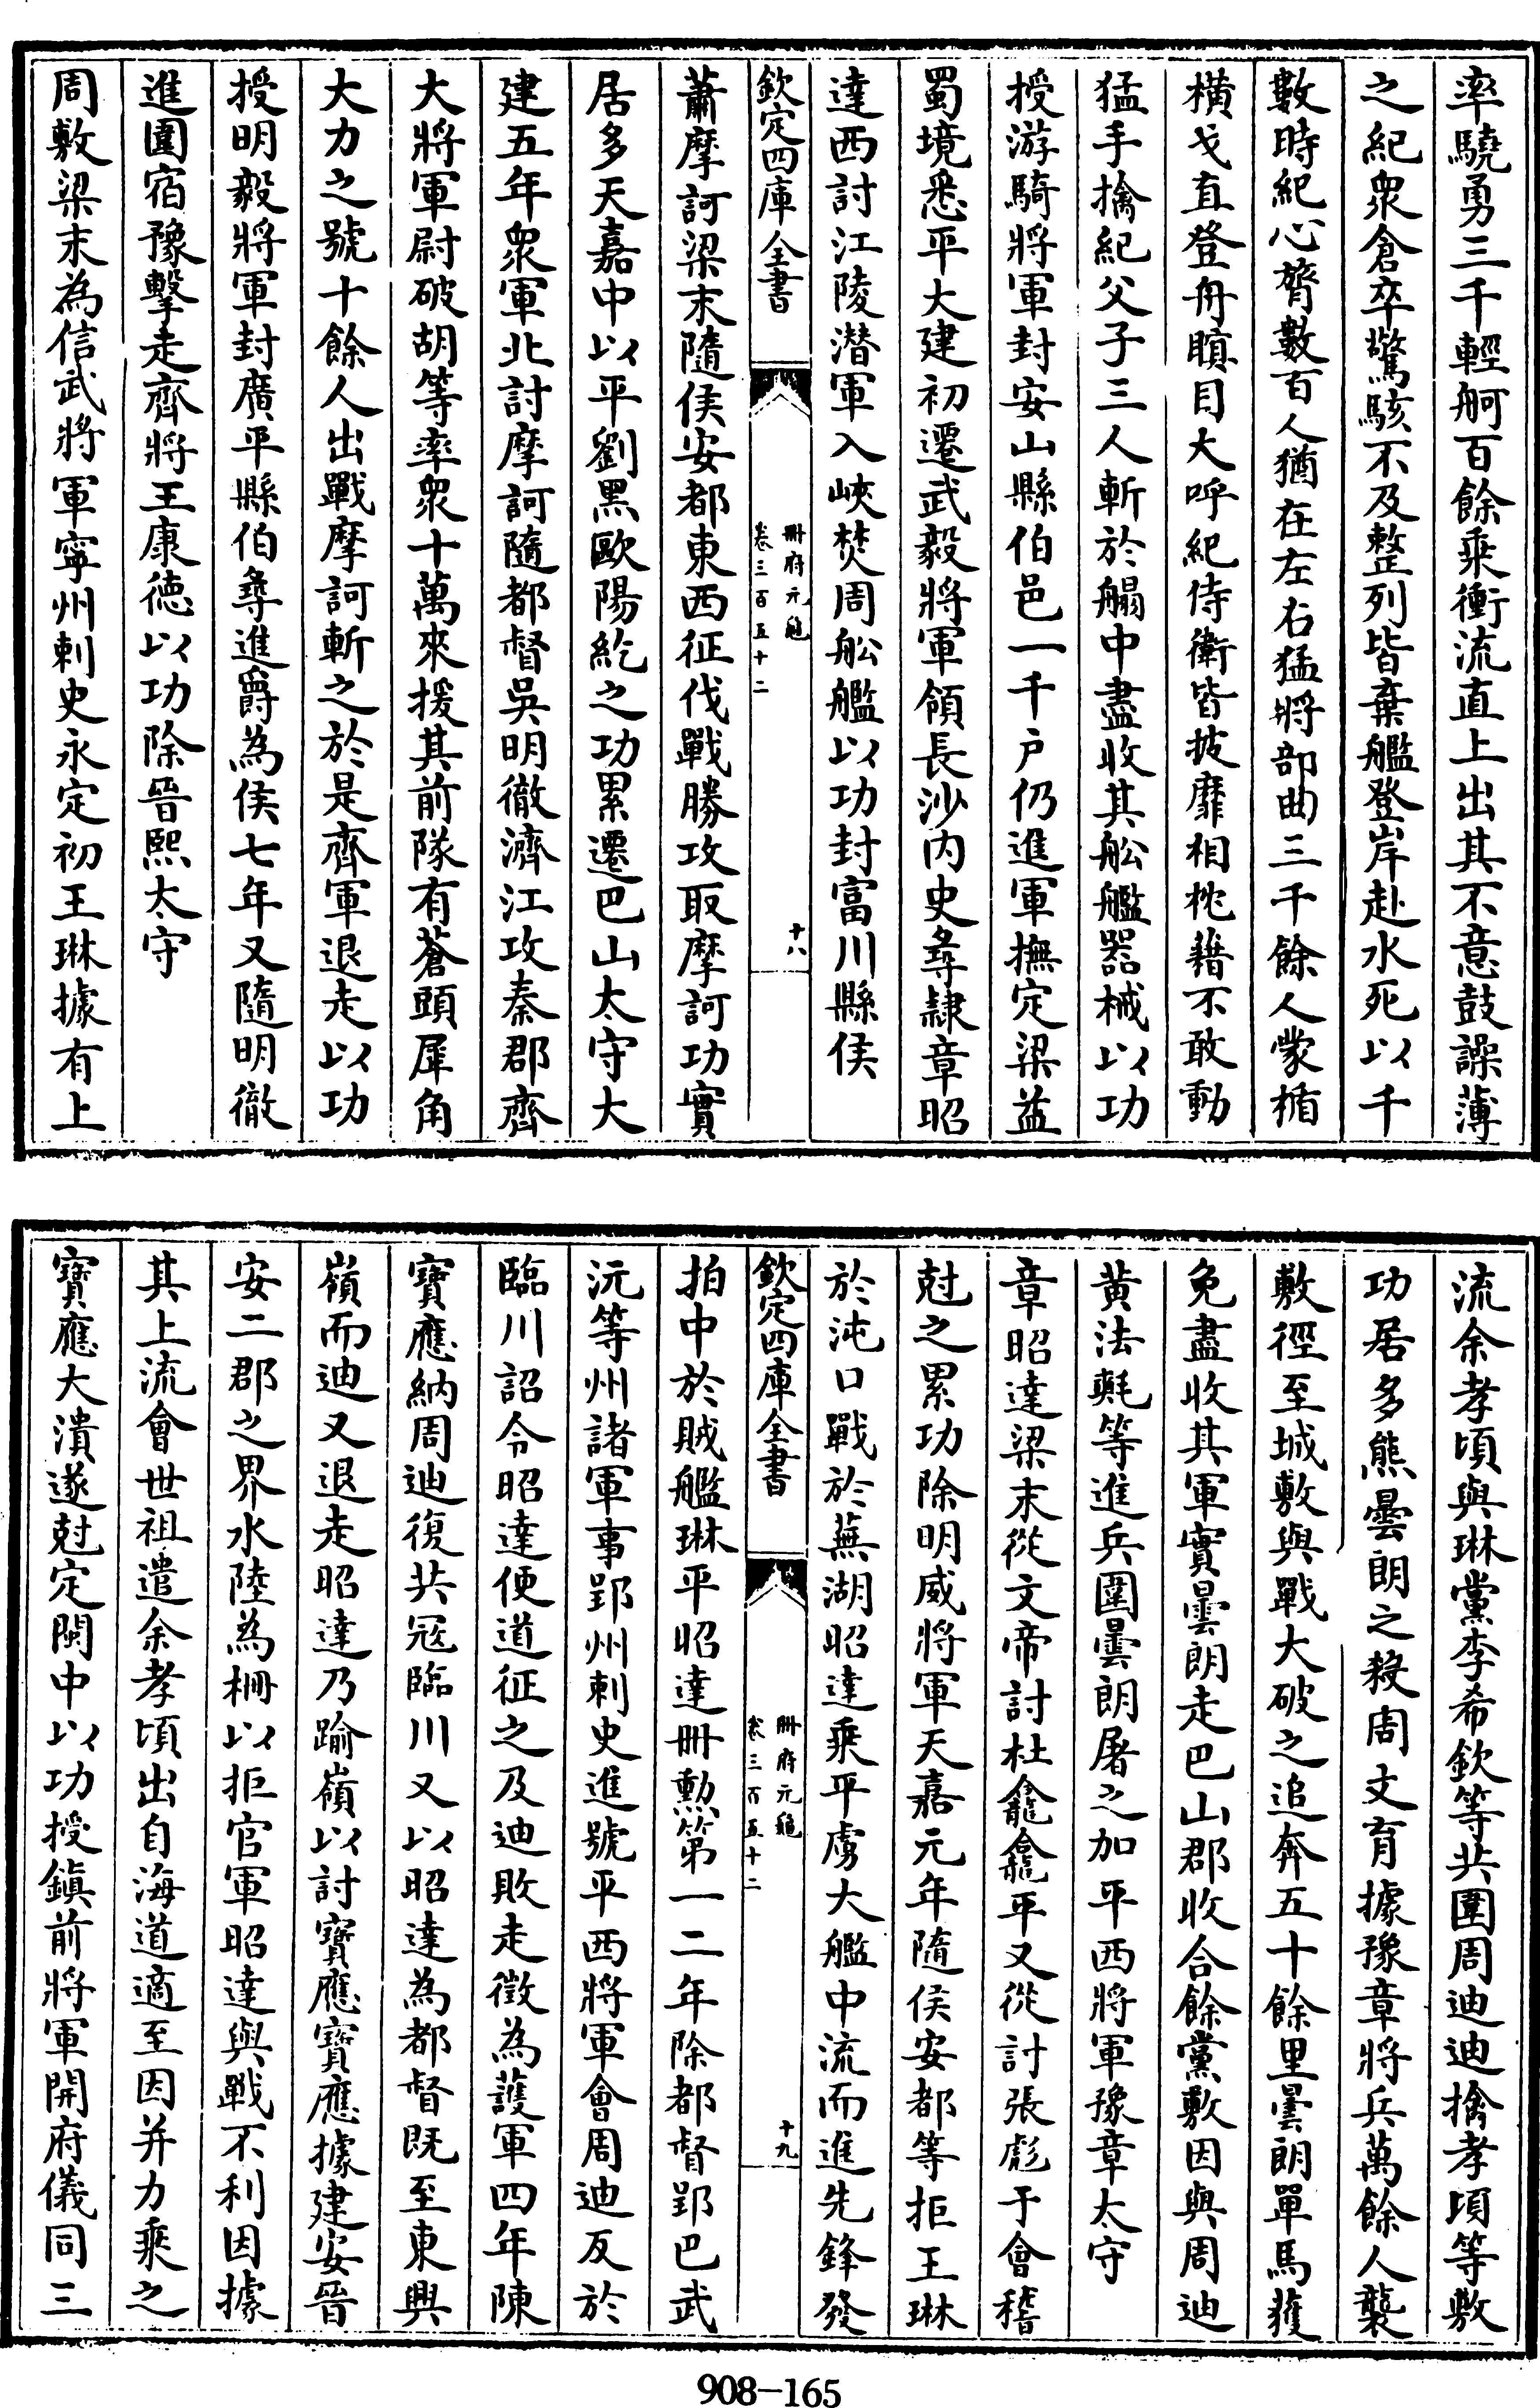 率驍勇三千輕舸百餘乘衝流直上出其不意鼓譟薄
之紀衆倉卒驚駭不及整列皆棄艦登岸赴水死以千
數時紀心膂數百人猶在左右猛將部曲三千餘人䝉楯
橫戈直登舟瞋目大呼紀侍衛皆披靡相枕藉不敢動
猛手擒紀父子三人斬於䑽中盡收其舩艦器械以功
授游騎將軍封安山縣伯邑一千户仍進軍撫定梁益
蜀境悉平大建初遷武毅將軍領長沙内史尋隷章昭
達西討江陵潛軍入峽焚周舩艦以功封富川縣侯
欽定四庫全書
冊府元龜
卷三百五十二
十八
蕭摩訶梁末隨侯安都東西征伐戰勝攻取摩訶功實
居多天嘉中以平劉黑歐陽紇之功累遷巴山太守大
建五年衆軍北討摩訶隨都督吳明徹濟江攻秦郡齊
大將軍尉破胡等率衆十萬來援其前隊有蒼頭犀角
大力之號十餘人出戰摩訶斬之於是齊軍退走以功
授明毅將軍封廣平縣伯尋進爵為侯七年又隨明徹
進圍宿豫擊走齊將王康德以功除晉熙太守
周敷梁末為信武將軍寧州刺史永定初王琳據有上
流余孝頃與琳黨李希欽等共圍周迪迪擒孝頃等敷
功居多熊曇朗之殺周文育據豫章將兵萬餘人襲
敷徑至城敷與戰大破之追奔五十餘里曇朗單馬獲
免盡收其軍實曇朗走巴山郡收合餘黨敷因與周迪
黄法𣰰等進兵圍曇朗屠之加平西將軍豫章太守
章昭達梁末從文帝討杜龕龕平又從討張彪于會稽
尅之累功除明威將軍天嘉元年隨侯安都等拒王琳
於沌口戰於蕪湖昭達乘平虜大艦中流而進先鋒發
欽定四庫全書
冊府元龜
卷三百五十二
十九
拍中於賊艦琳平昭達冊勲第一二年除都督郢巴武
沅等州諸軍事郢州刺史進號平西將軍會周迪反於
臨川詔令昭達便道征之及迪敗走徵為護軍四年陳
寳應納周迪復共冦臨川又以昭達為都督既至東興
嶺而迪又退走昭達乃踰嶺以討寳應寳應據建安晉
安二郡之界水陸為柵以拒官軍昭達與戰不利因據
其上流會世祖遣余孝頃出自海道適至因并力乘之
寳應大潰遂尅定閩中以功授鎮前將軍開府儀同三
908-165